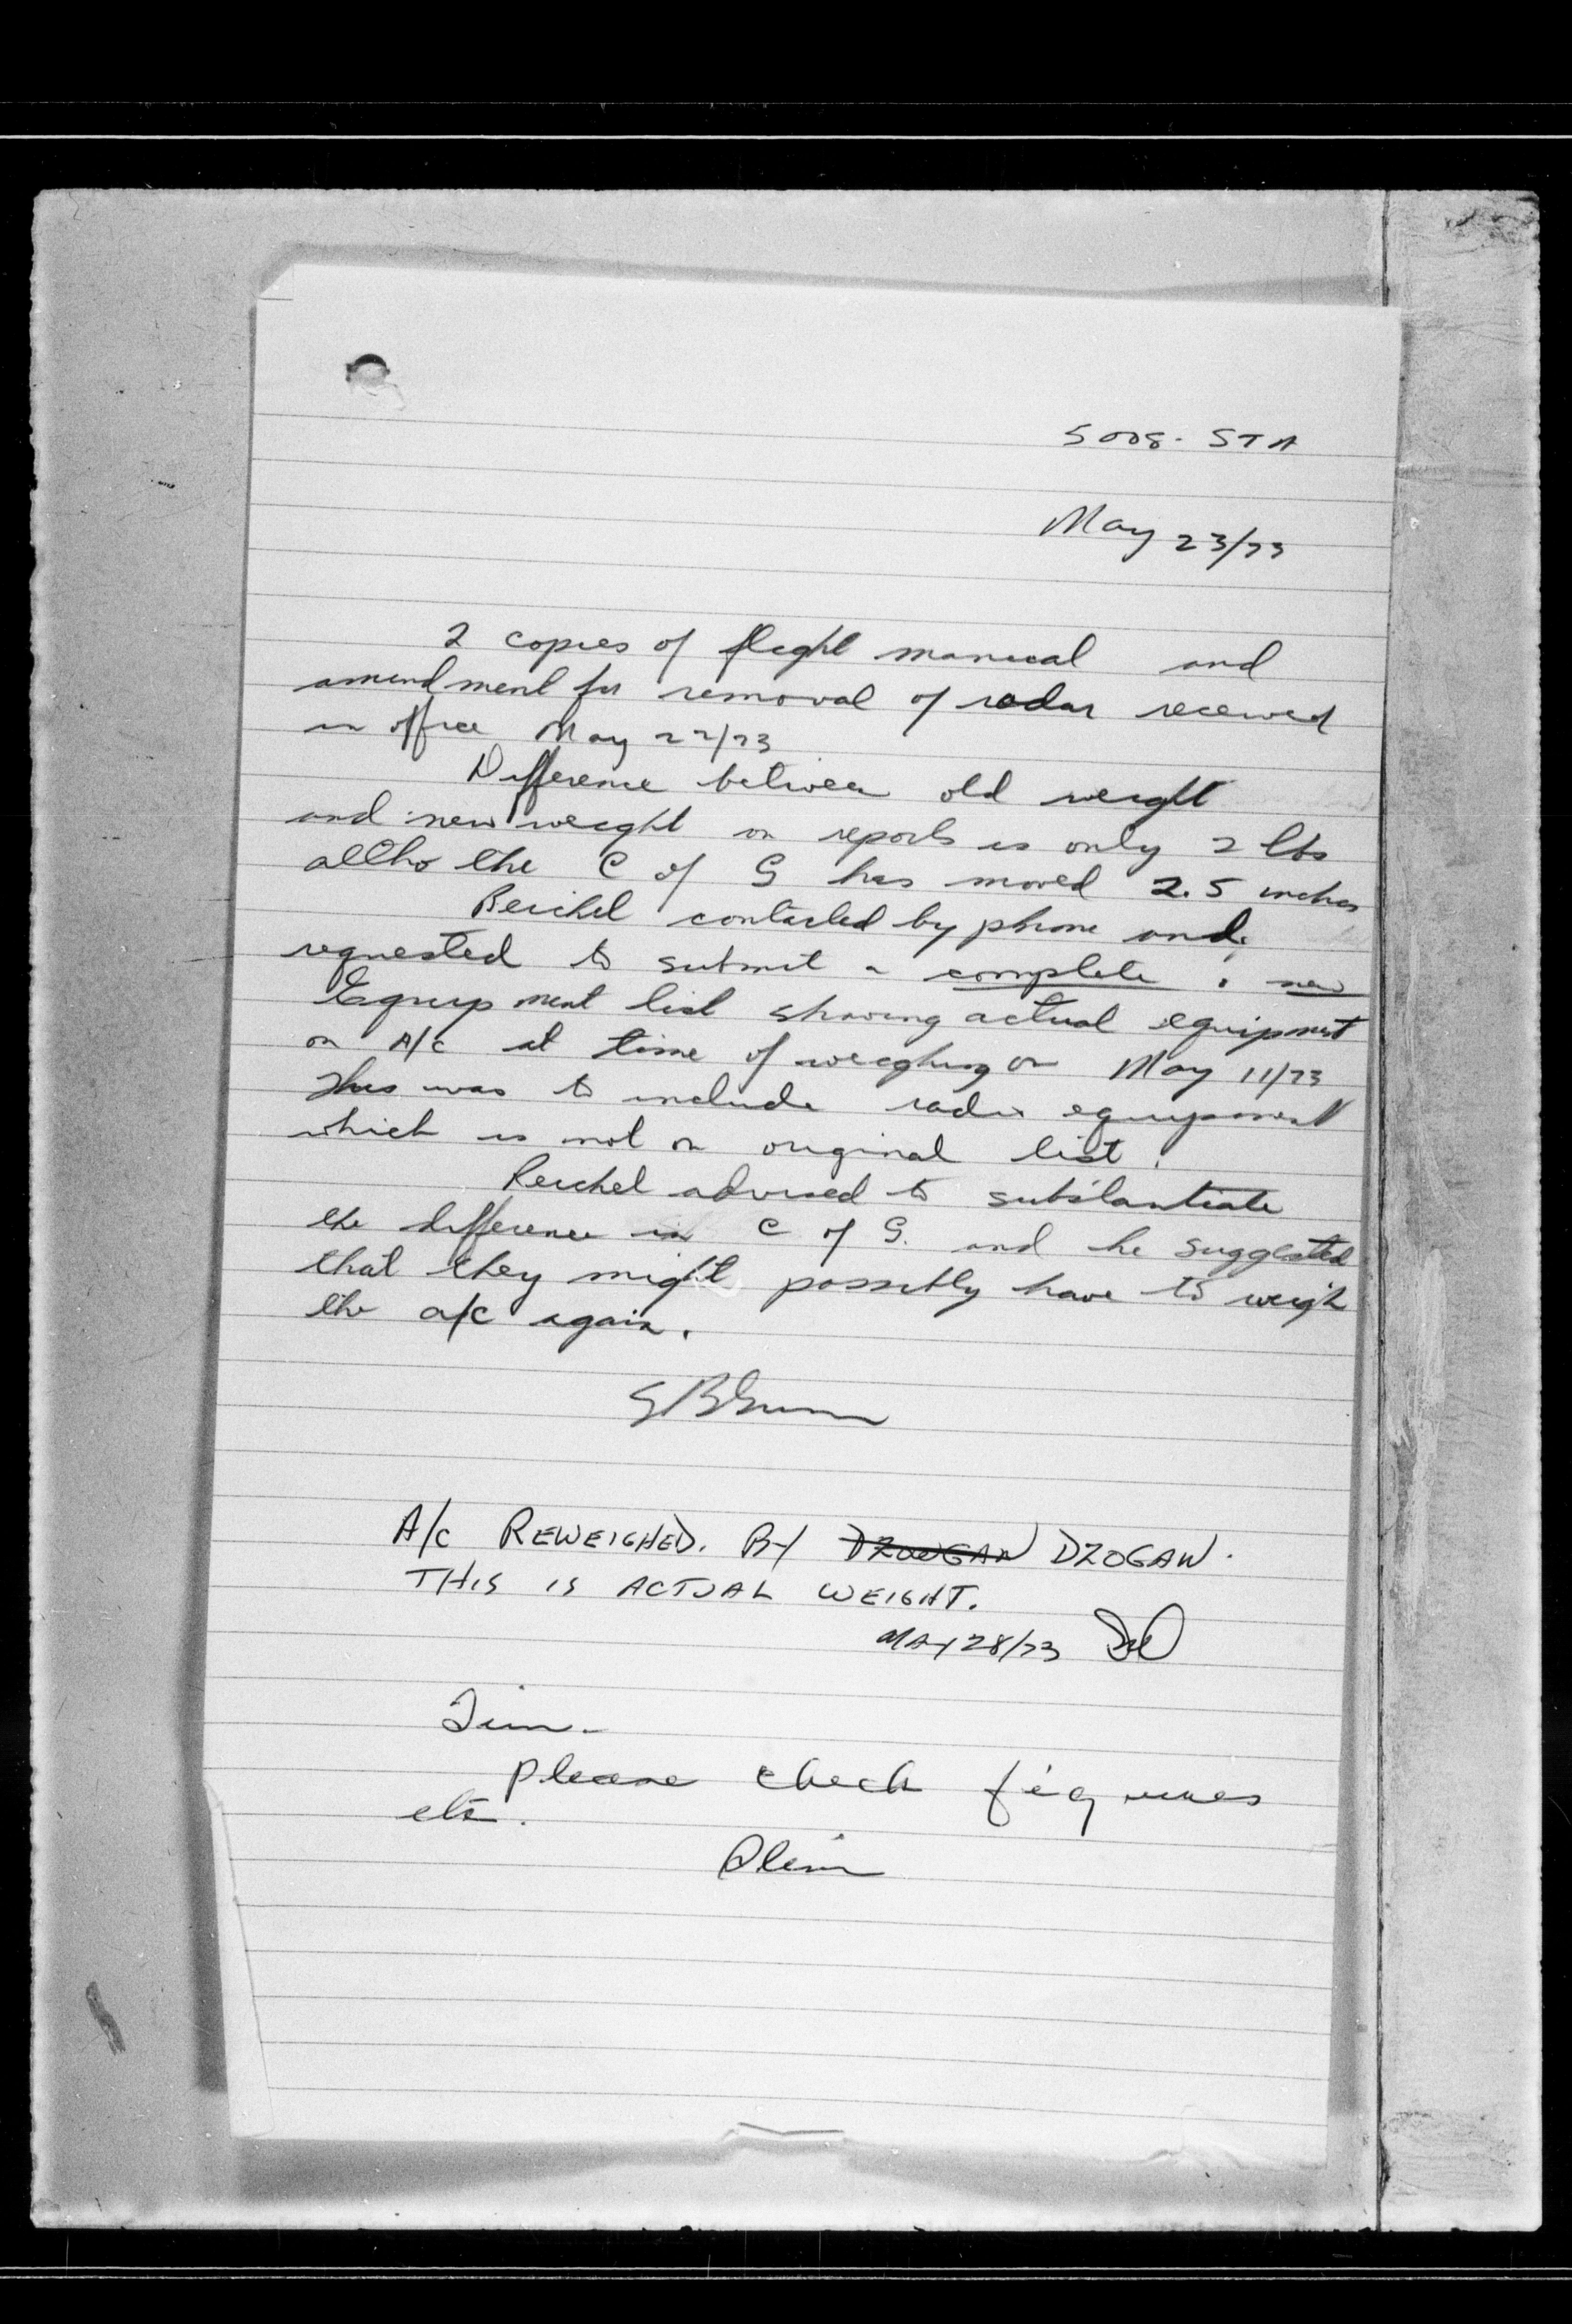 5008-STA
May 23/73
2 copies of flight manual and
amendment for removal of radar received
in office May 22/73
Difference between old weight
and new weight on reports is only 2 lbs
altho the C of G has moved 2.5 inches
Reichel contacted by phone and
requested to submit a complete & new
Equipment list showing actual equipment
on A/C at time of weighing on May 11/73
This was to include radio equipment
which is not on original list.
Reichel advised to substantiate
the difference in C of G. and he suggested
that they might possibly have to weigh
the a/c again.
A/C REWEIGHED. BY DZOOGAN DZOGAN.
THIS IS ACTUAL WEIGHT.
MAY 28/73
Jim-
please check figures
etc.